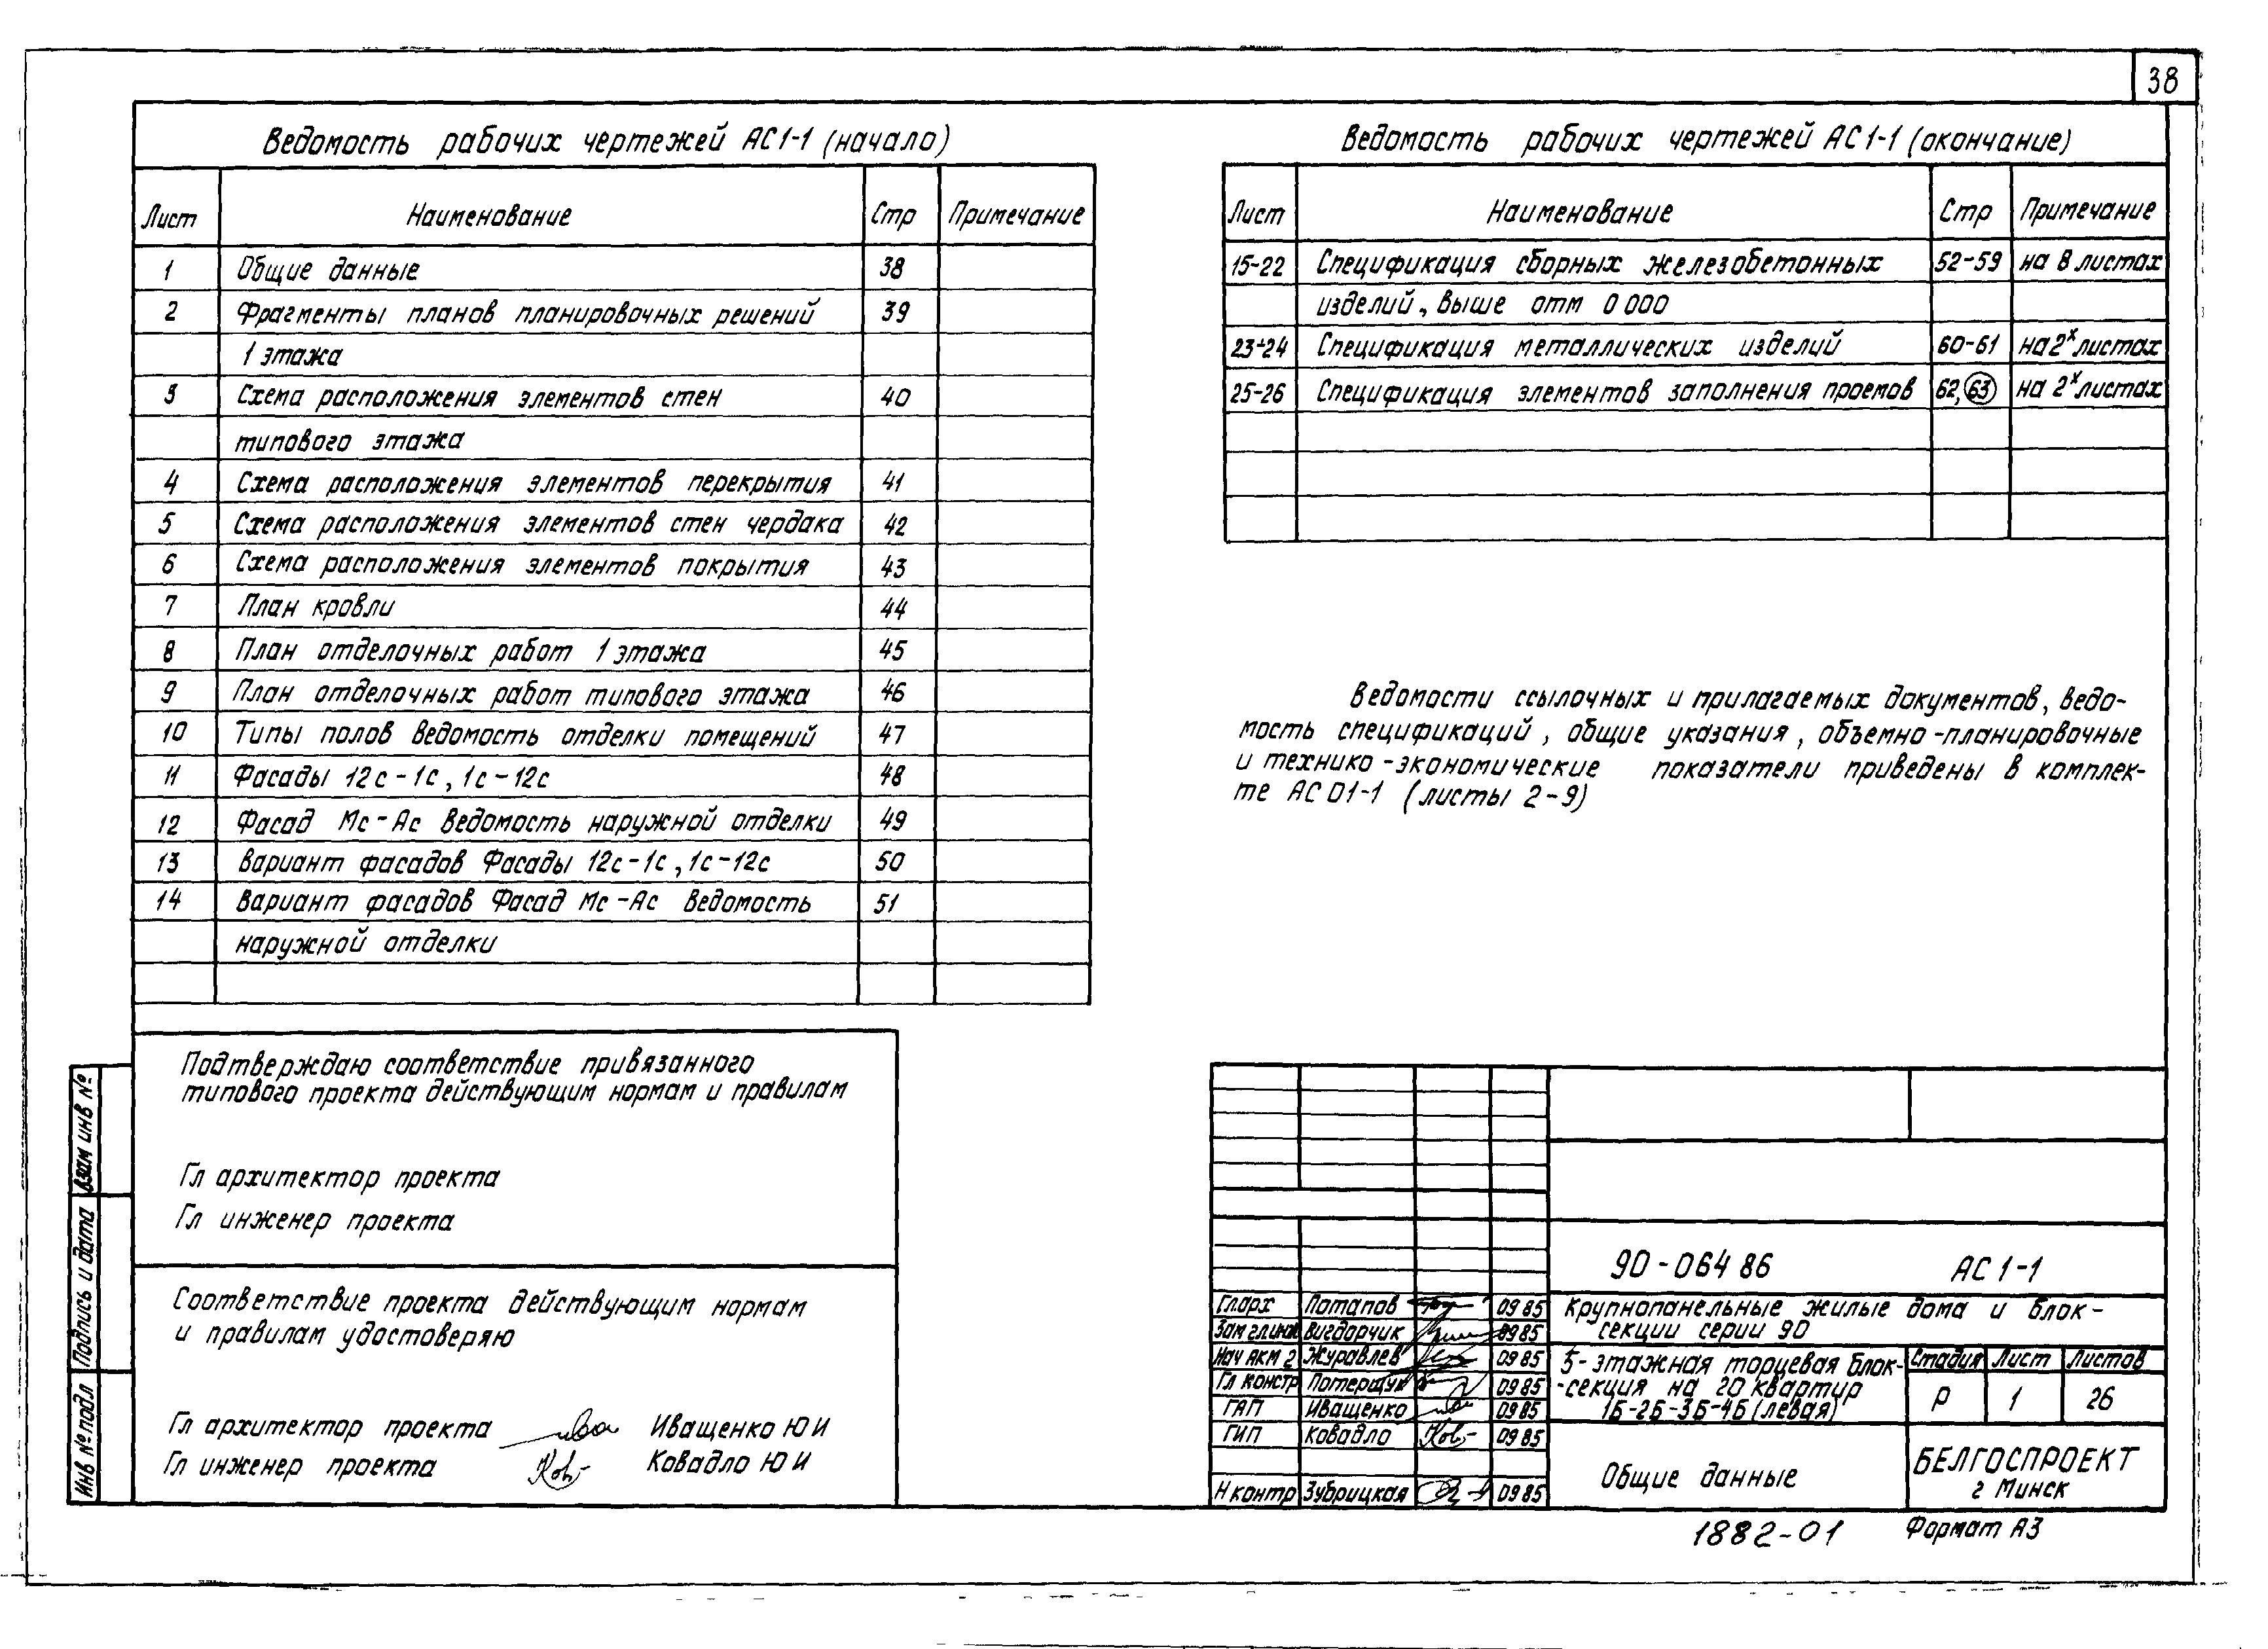 38
Ведомость рабочих чертежей АС1-1 (начало)
Лист Наименование Стр Примечание
1 Общие данные 38
2 Фрагменты планов планировочных решений 39
1 этажа
3 Схема расположения элементов стен 40
типового этажа
4 Схема расположения элементов перекрытия 41
5 Схема расположения элементов стен чердака 42
6 Схема расположения элементов покрытия 43
7 План кровли 44
8 План отделочных работ 1 этажа 45
9 План отделочных работ типового этажа 46
10 Типы полов Ведомость отделки помещений 47
11 Фасады 12с-1с, 1с-12с 48
12 Фасад Мс-Ас Ведомость наружной отделки 49
13 Вариант фасадов Фасады 12с-1с, 1с-12с 50
14 Вариант фасадов Фасад Мс-Ас Ведомость 51
наружной отделки
Ведомость рабочих чертежей АС1-1 (окончание)
Лист Наименование Стр Примечание
15-22 Спецификация сборных железобетонных 52-59 на 8 листах
изделий, выше отм 0 000
23÷24 Спецификация металлических изделий 60-61 на 2х листах
25-26 Спецификация элементов заполнения проемов 62, 63 на 2х листах
Ведомости ссылочных и прилагаемых документов, ведо-
мость спецификаций, общие указания, объемно-планировочные
и технико-экономические показатели приведены в комплек-
те АС 01-1 (листы 2-9)
Подтверждаю соответствие привязанного
типового проекта действующим нормам и правилам
Гл архитектор проекта
Гл инженер проекта
Соответствие проекта действующим нормам
и правилам удостоверяю
Гл архитектор проекта Иващенко Ю И
Гл инженер проекта Ковадло Ю И
Взам инв №
Подпись и дата
Инв № подл
90-064 86 АС 1-1
Гл арх Потапов 09 85
Зам гл инж Вигдорчик 09 85
Нач АКМ 2 Журавлев 09 85
Гл констр Потерщук 09 85
ГАП Иващенко 09 85
ГИП Ковадло 09 85
Н контр Зубрицкая 09 85
Крупнопанельные жилые дома и блок-
секции серии 90
5-этажная торцевая блок-
-секция на 20 квартир
1Б-2Б-3Б-4Б (левая)
Стадия Лист Листов
Р 1 26
Общие данные
БЕЛГОСПРОЕКТ
г Минск
1882-01 Формат А3